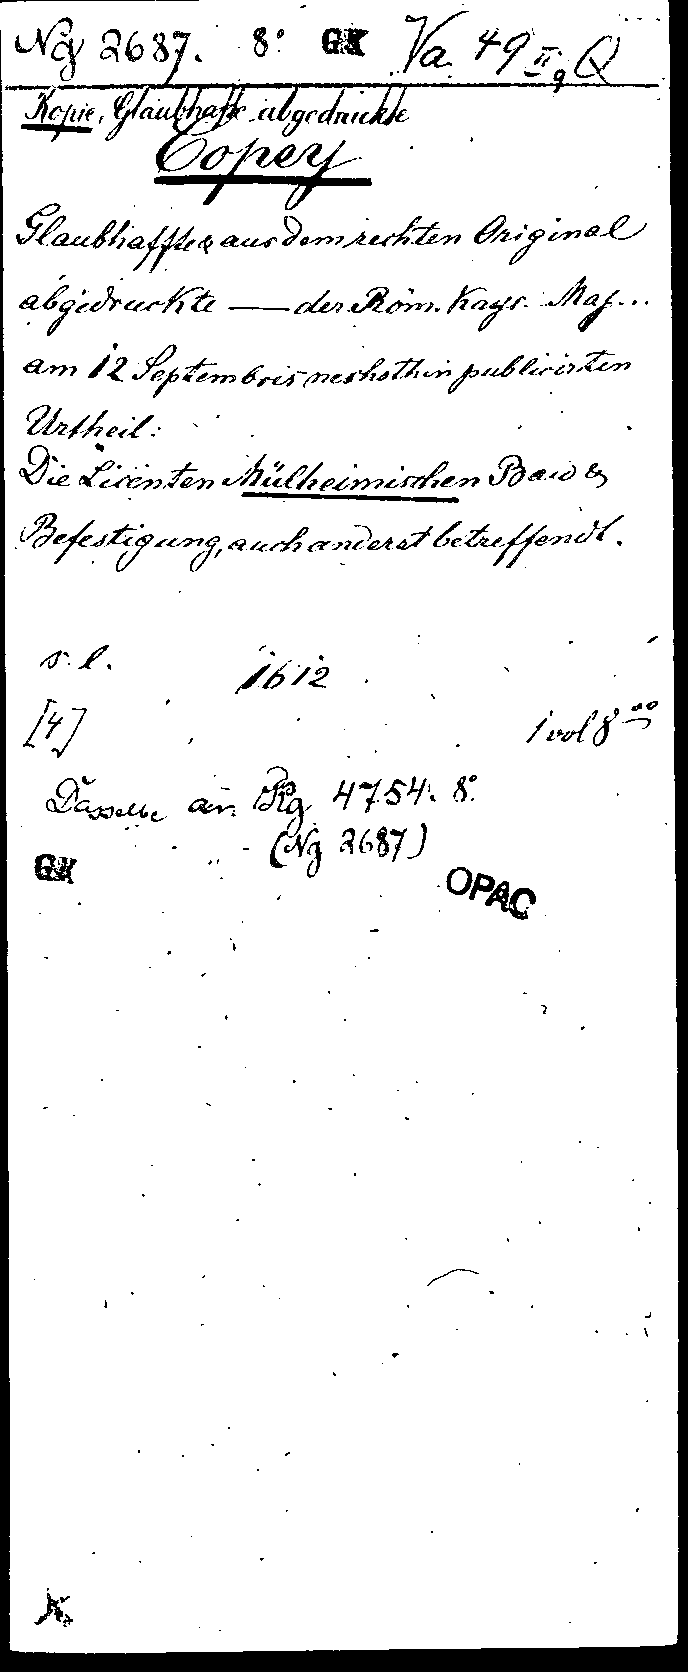 Ng 2687. 8° GK Va 49 II, 9 Q
Kopie, Glaubhafte abgedruckte
Copey
Glaubhaffte & aus dem rechten Original
abgedruckte — der Röm. Kays. Maj...
am 12 Septembris nechsthin publicirten
Urtheil:
Die Licenten Mülheimischen Baw &
Befestigung, auch anderst betreffendt.
s. l. 1612
[4] 1 vol 8°
Dasselbe an Rg 4754. 8°
(Ng 2687)
GK OPAC